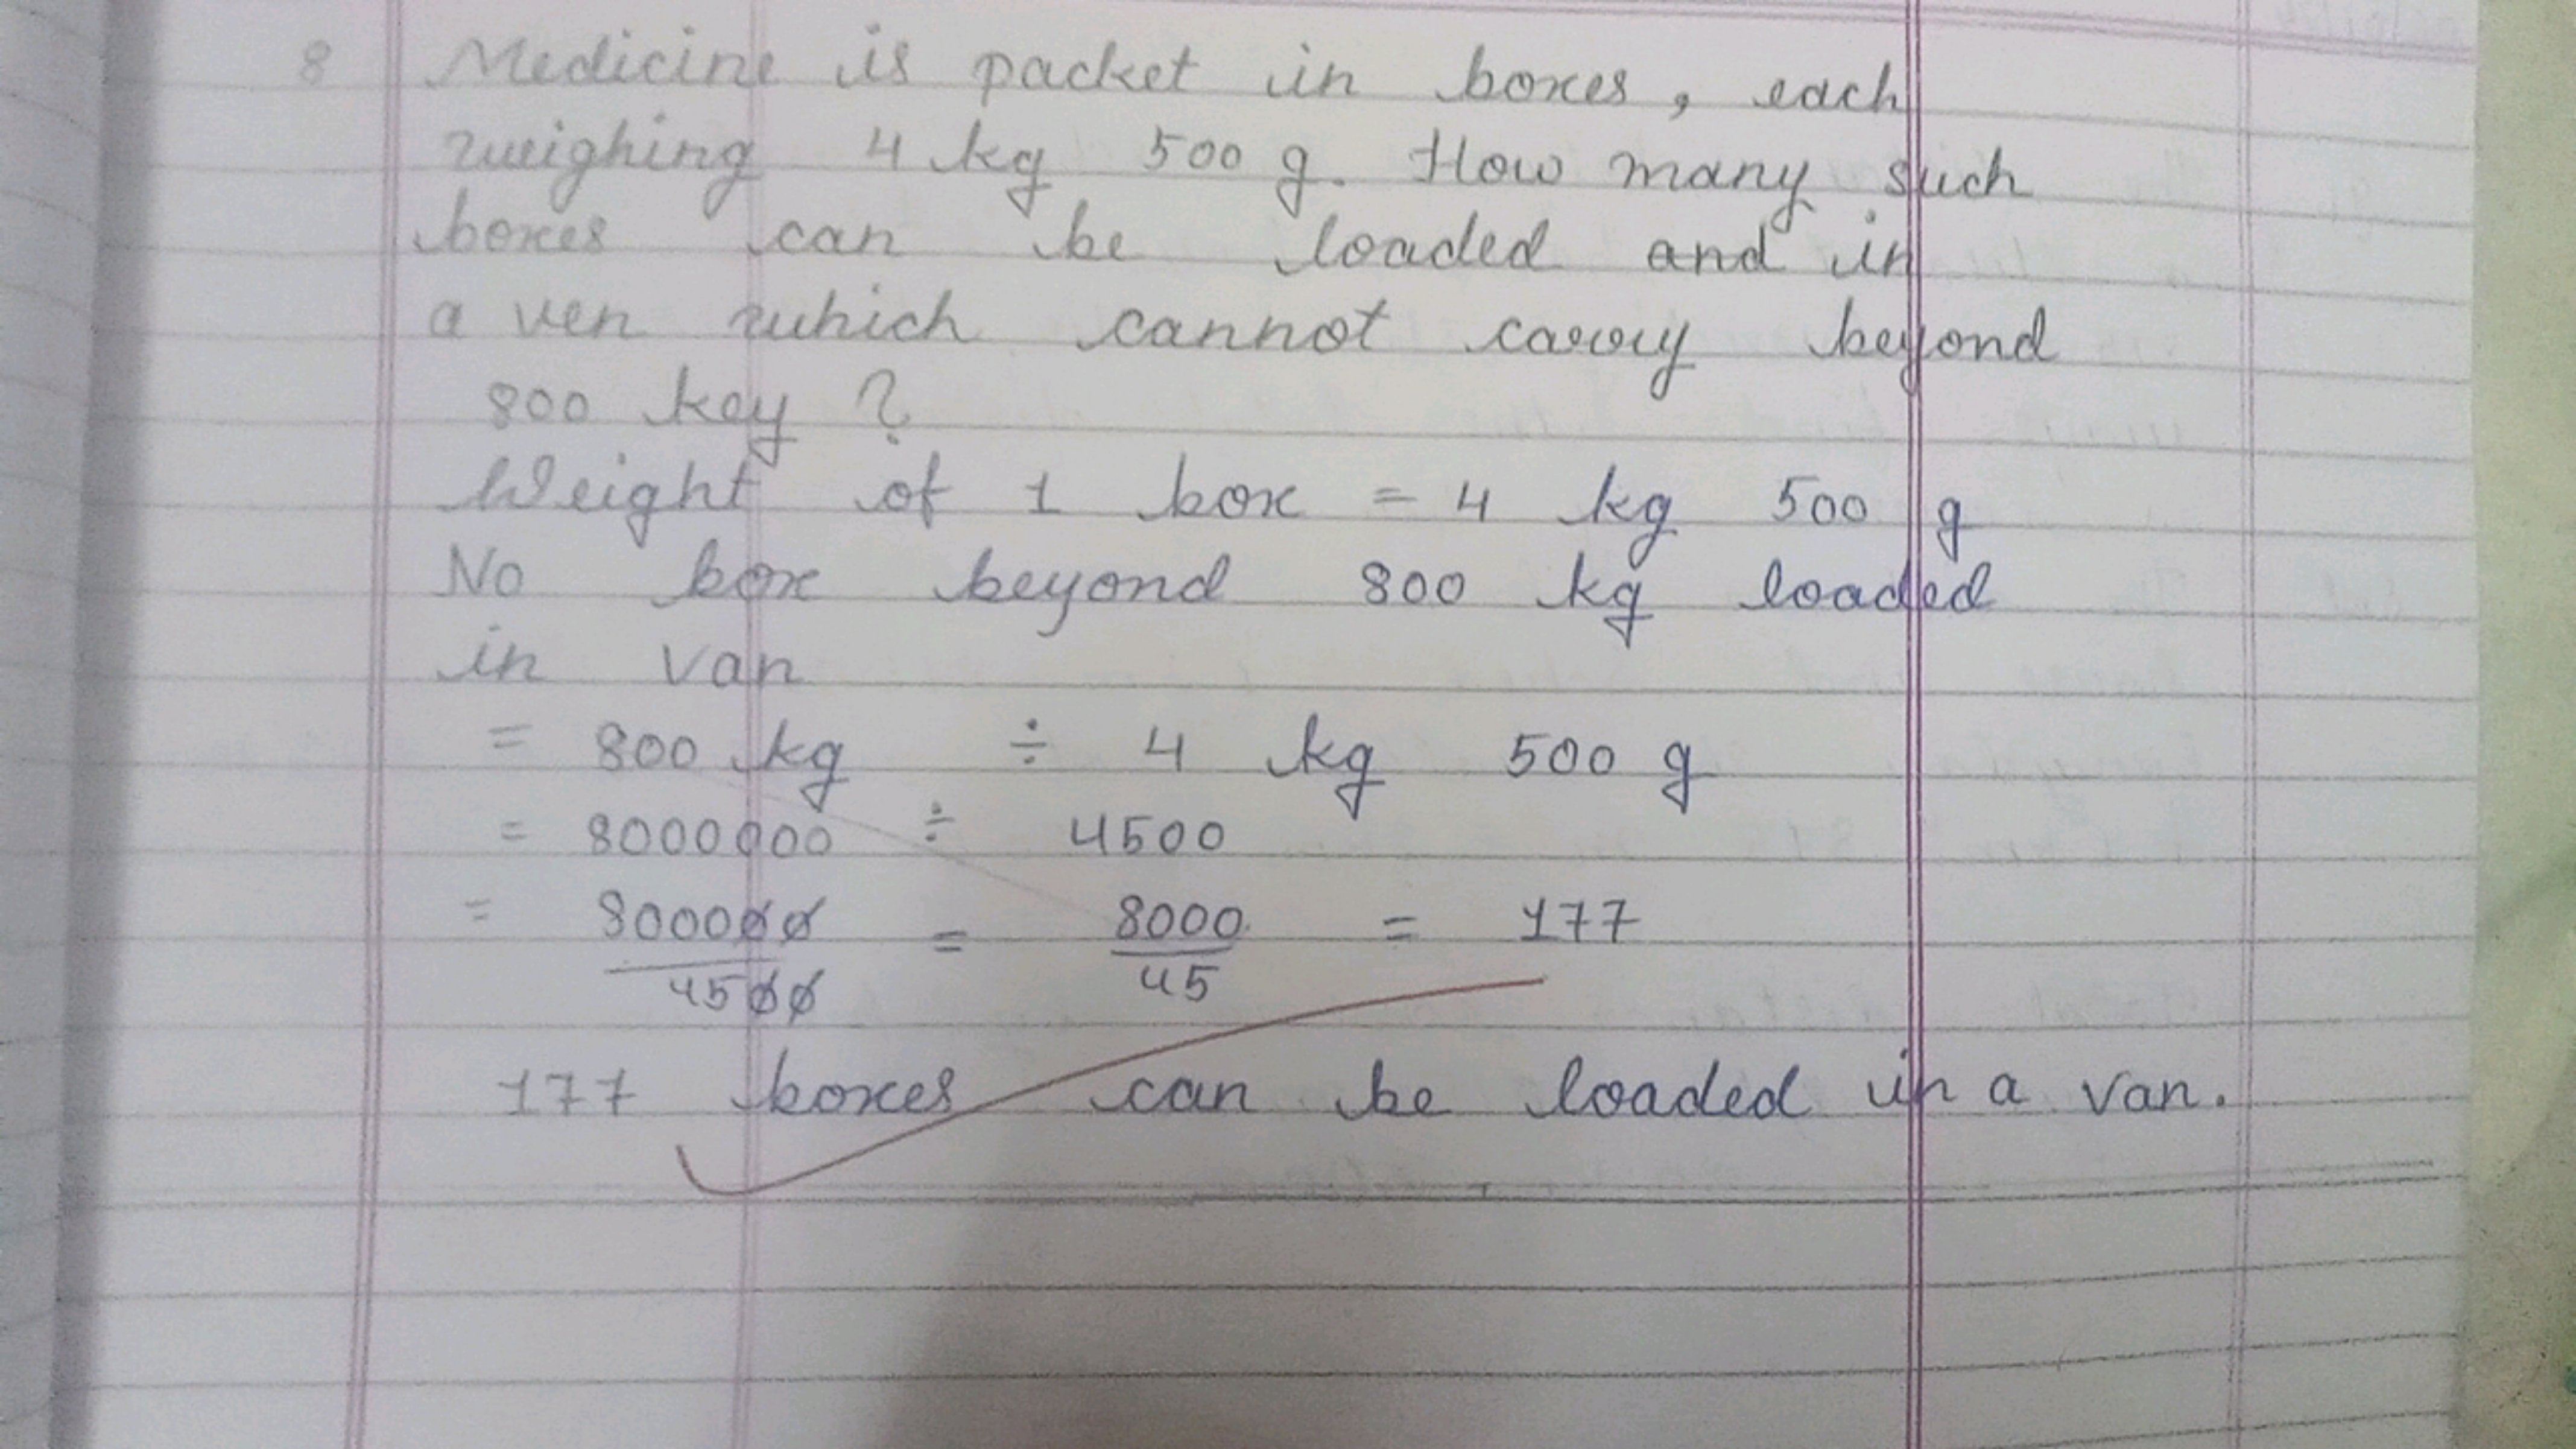 8 Medicine is packet in boxes, each
weighing 4 kg 500 g. How many such
boxes can be loaded and in
a ven which cannot carry beyond
800 key ?
Weight of 1 box = 4 kg 500 g
No box beyond 800 kg loaded
in van
= 800 kg ÷ 4 kg 500 g
= 8000000 ÷ 4500
= 800000 / 4500 = 8000 / 45 = 177
177 boxes can be loaded in a van.